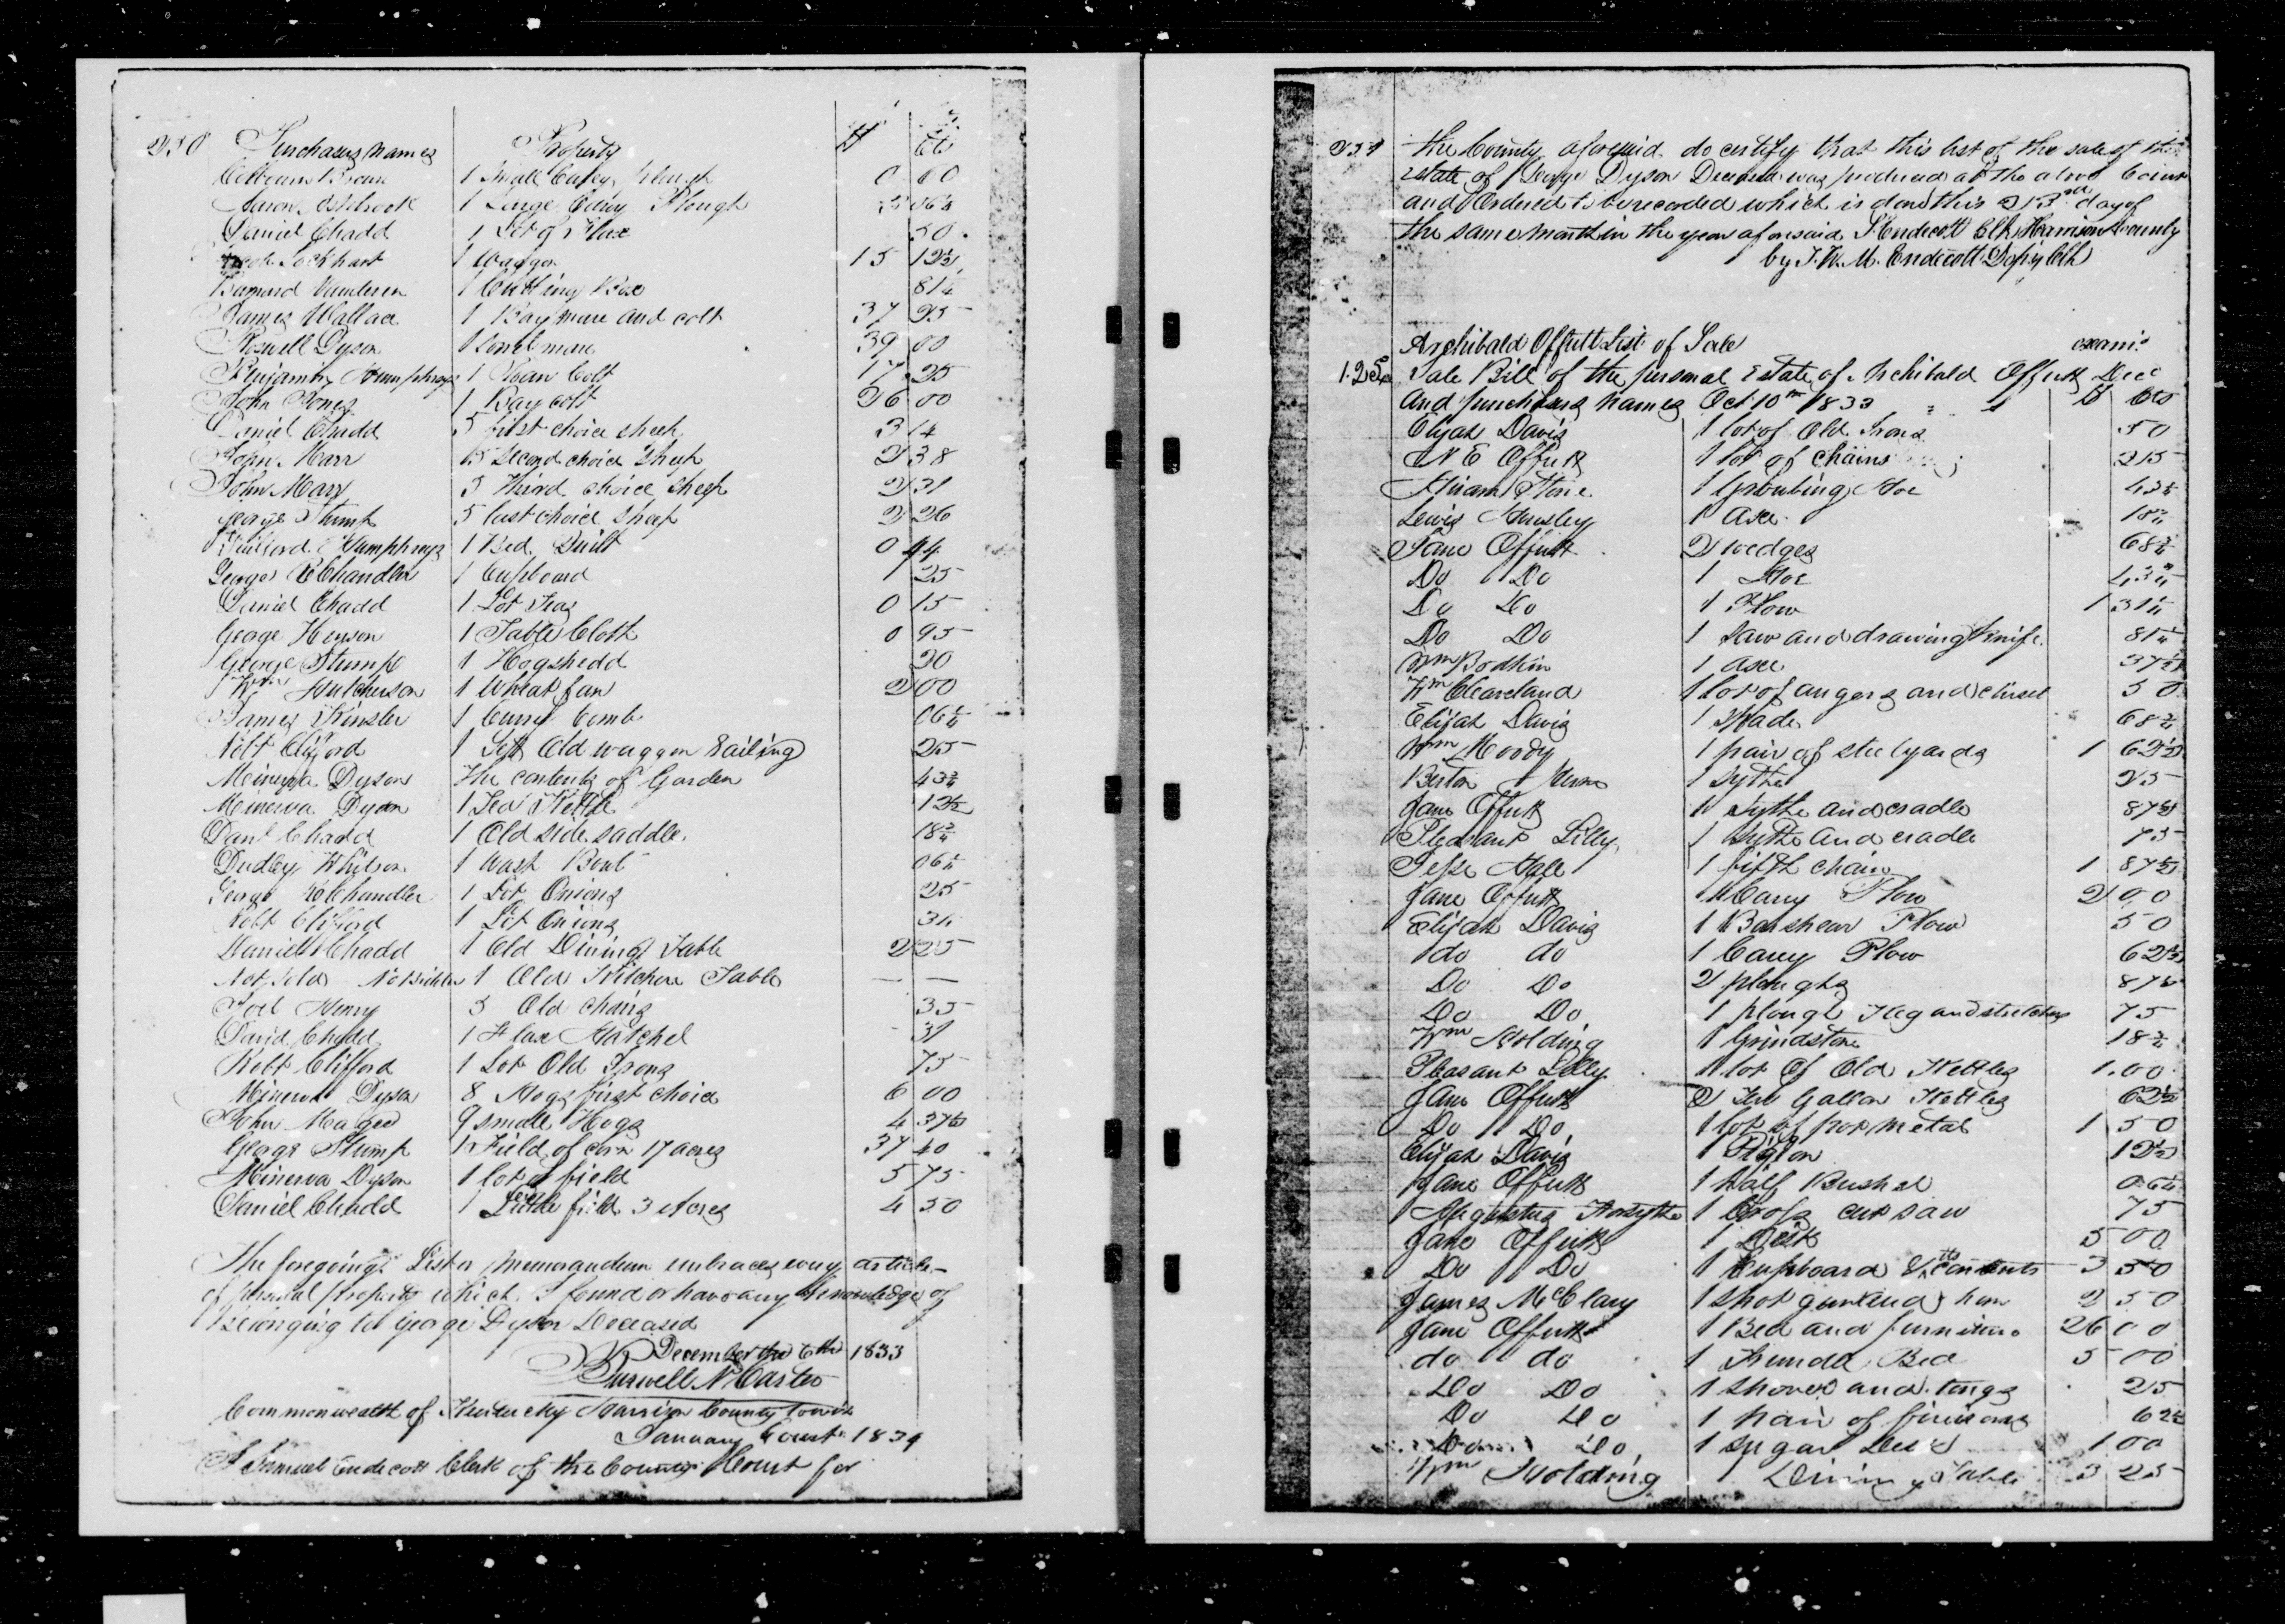 250 Purchasers names Property $ Cts
William Brown 1 Small Carey plough 0 60
Aaron Ashbrook 1 Large Carey Plough 06¼
Daniel Chadd 1 Lot of Flax 50
Jacob Lockhart 1 Waggon 15 12½
Barnard Vanderen 1 Cutting Box 81¼
James Wallace 1 Bay mare and colt 37 25
Roswell Dyson 1 Sorrel mare 39 00
Benjamin Humphreys 1 Roan Colt 17 25
John Jones 1 Bay colt 26 00
Daniel Chadd 5 first choice sheep 3 14
John Marr 5 Second choice Sheep 2 38
John Marr 5 Third choice Sheep 2 31
George Stump 5 last choice Sheep 2 26
Humphreys 1 Bed Quilt 0 44
George Chandler 1 Cupboard 1 25
Daniel Chadd 1 Lot 0 15
George Henson 1 Table Cloth 0 95
George Stump 1 Hogshedd 20
Wm Hutcherson 1 Wheat fan 2 00
James Kinsler 1 Curry Comb 06¼
Robt Clifford 1 Old waggon 25
Minerva Dyson The contents of Garden 43¾
Minerva Dyson 1 Tea Kettle 12½
Danl Chadd 1 Old side saddle 18¾
Dudley Whitson 1 Wash Bowl 06¼
George Chandler 1 Lot Onions 25
Robt Clifford 1 Lot Onions 31
Daniel Chadd 1 Old Dining Table 2 25
Not Sold No Bidder 1 Old Kitchen Table — —
Joel Henry 3 Old chairs 35
David Chadd 1 Flax Hatchel 31
Robt Clifford 1 Lot Old Irons 75
Minerva Dyson 8 Hogs first choice 6 00
John Magee 9 small Hogs 4 37½
George Stump 1 Field of corn 17 acres 37 40
Minerva Dyson 1 lot of field 5 75
Daniel Chadd 1 Little field 3 Acres 4 50
The foregoing List or Memorandum embraces every article
of personal property which I found or have any knowledge of
Belonging to George Dyson Deceased
December the 6th 1833
N Carter
Commonwealth of Kentucky Harrison County Towit
January Court 1834
I Samuel Endecott Clerk of the County Court for
251 the County aforesaid do certify that this list of the sale of the
estate of George Dyson Deceased was produced at the above Court
and Ordered to be recorded which is done this 23rd day of
the same month in the year aforesaid S. Endecott Clk Harrison County
by J. W. M. Endicott Depty Clk
Archibald Offutt List of Sale exam.
Sale Bill of the personal Estate of Archibald Offutt Decd
and purchasers names Oct 10th 1833 $ Cts
Elijah Davis 1 lot of Old Irons 50
N E Offutt 1 lot of chains 25
Hiram Stone 1 Grubing Hoe 43¾
Lewis Hensley 1 Axe 18¾
Jane Offutt 2 wedges 68¾
Do Do 1 Hoe 43¾
Do Do 1 Plow 1 31¼
Do Do 1 Saw and drawing Knife 81¼
Wm Bodkin 1 Axe 37½
Wm Cleaveland 1 lot of augers and chisel 50
Elijah Davis 1 Spade 68¾
Wm Moody 1 pair of steelyards 1 62½
1 Sythe 25
Jane Offutt 1 Sythe and cradle 87½
Pleasant Lilly 1 Sythe and cradle 75
Jesse Hall 1 fifth chain 1 87½
Jane Offutt 1 Carey Plow 2 00
Elijah Davis 1 Barshear Plow 50
do do 1 Carey Plow 62½
Do Do 2 ploughs 87½
Do Do 1 plough and stretchers 75
Wm Holding 1 Grindstone 18¾
Pleasant Lilly 1 lot of Old Kettles 1.00
Jane Offutt 2 Ten Gallon Kettles 62½
Do Do 1 lot of pot metal 1 50
Elijah Davis 1 12½
Jane Offutt 1 half Bushel 06¼
Augustus Forsythe 1 Cross cut saw 75
Jane Offutt 1 Desk 5 00
Do Do 1 Cupboard & its contents 3 50
James McClary 1 shot gun and horn 2 50
Jane Offutt 1 Bed and furniture 26 00
do do 1 Trundle Bed 5 00
Do Do 1 Shovel and tongs 25
Do Do 1 pair of 62½
Do Do 1 Sugar Desk 1 00
Wm Holding 1 Dining Table 3 25